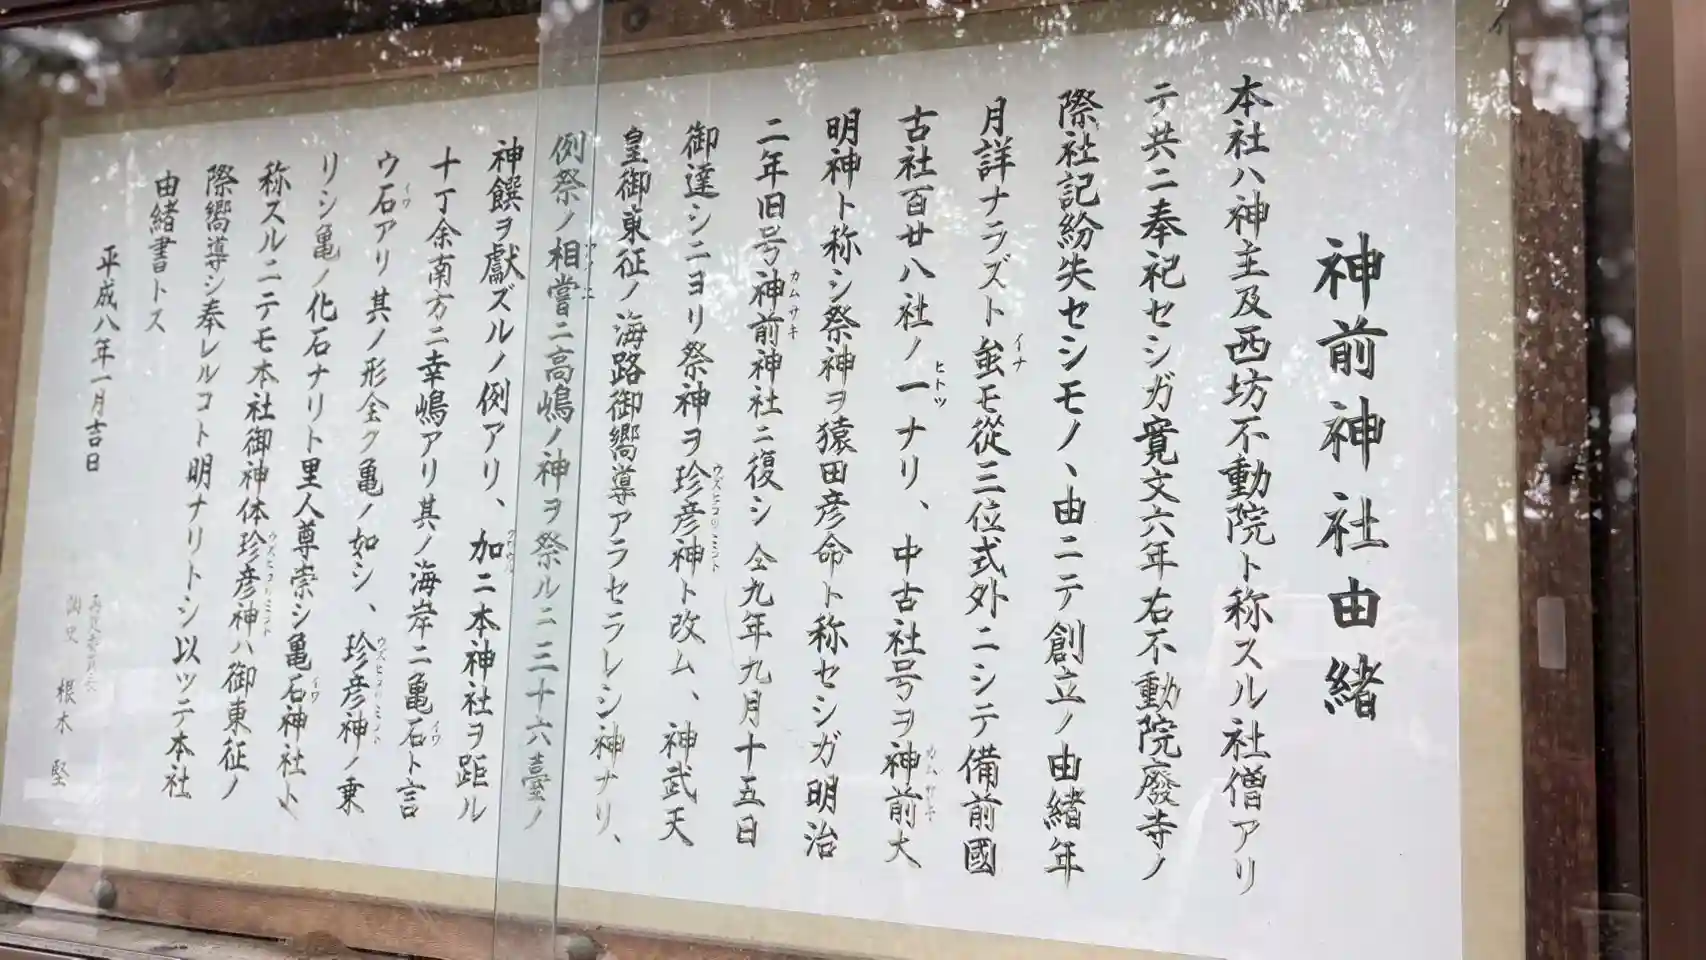 神前神社由緒
本社ハ神主及西坊不動院ト称スル社僧アリ
テ共ニ奉祀セシガ寛文六年右不動院廢寺ノ
際社記紛失セシモノヽ由ニテ創立ノ由緒年
月詳ナラズト雖モ從三位式外ニシテ備前國
古社百廿八社ノ一ナリ、中古社号ヲ神前大
明神ト称シ祭神ヲ猿田彦命ト称セシガ明治
二年旧号神前神社ニ復シ仝九年九月十五日
御達シニヨリ祭神ヲ珍彦神ト改ム、神武天
皇御東征ノ海路御嚮導アラセラレシ神ナリ、
例祭ノ相嘗ニ高嶋ノ神ヲ祭ルニ三十六臺ノ
神饌ヲ獻ズルノ例アリ、加ニ本神社ヲ距ル
十丁余南方ニ幸嶋アリ其ノ海岸ニ亀石ト言
ウ石アリ其ノ形全ク亀ノ如シ、珍彦神ノ乗
リシ亀ノ化石ナリト里人尊崇シ亀石神社ト
称スルニテモ本社御神体珍彦神ハ御東征ノ
際嚮導シ奉レルコト明ナリトシ以ッテ本社
由緒書トス
平成八年一月吉日
根木 堅